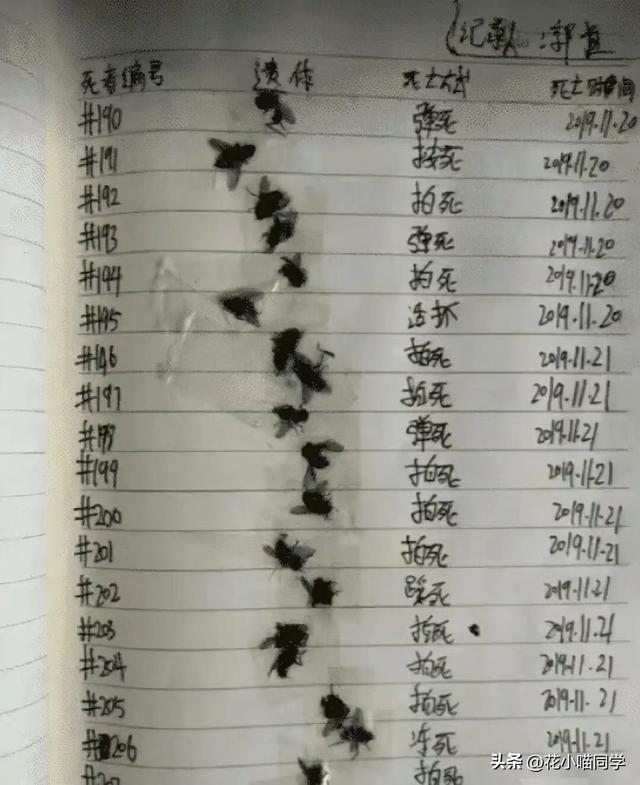 (记录人:郭
死者编号 遗体 死亡方式 死亡时间
#190 弹死 2019.11.20
#191 死 2019.11.20
#192 拍死 2019.11.20
#193 弹死 2019.11.20
#194 拍死 2019.11.20
#195 活抓 2019.11.20
#196 拍死 2019.11.21
#197 拍死 2019.11.21
#198 弹死 2019.11.21
#199 拍死 2019.11.21
#200 拍死 2019.11.21
#201 拍死 2019.11.21
#202 踩死 2019.11.21
#203 拍死 2019.11.21
#204 拍死 2019.11.21
#205 拍死 2019.11.21
#206 冻死 2019.11.21
#207 拍死
头条 @花小喵同学